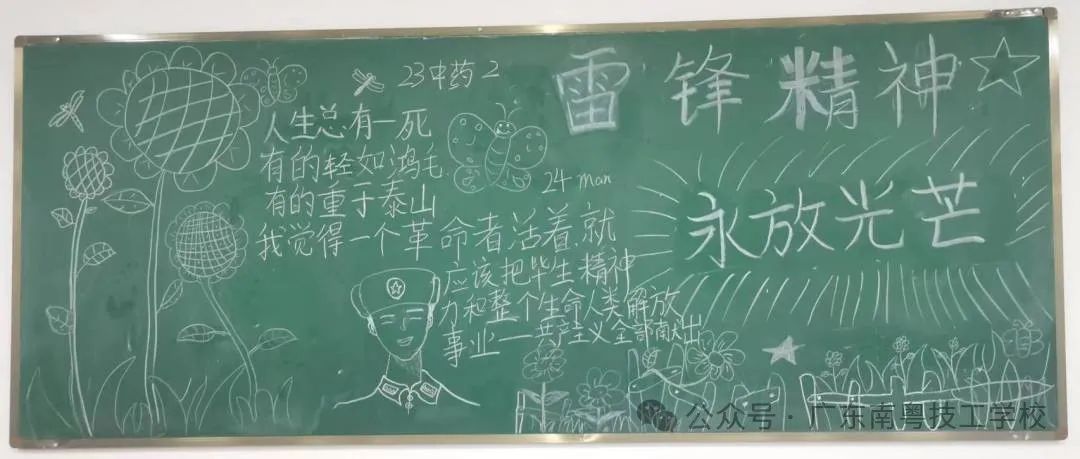 23中药2
雷锋精神
永放光芒
人生总有一死
有的轻如鸿毛
有的重于泰山
24man
我觉得一个革命者活着就
应该把毕生精神
力和整个生命人类解放
事业一共产主义全部献出
公众号·广东南粤技工学校